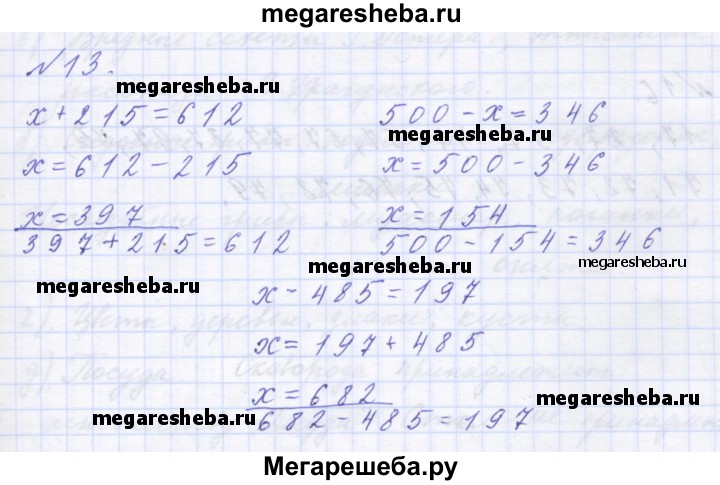 megaresheba.ru
№13.
megaresheba.ru
megaresheba.ru
x + 215 = 612
x = 612 - 215
x = 397
397 + 215 = 612
megaresheba.ru
500 - x = 346
megaresheba.ru
x = 500 - 346
x = 154
500 - 154 = 346
megaresheba.ru
megaresheba.ru
x - 485 = 197
x = 197 + 485
x = 682
682 - 485 = 197
megaresheba.ru
Мегарешеба.ру